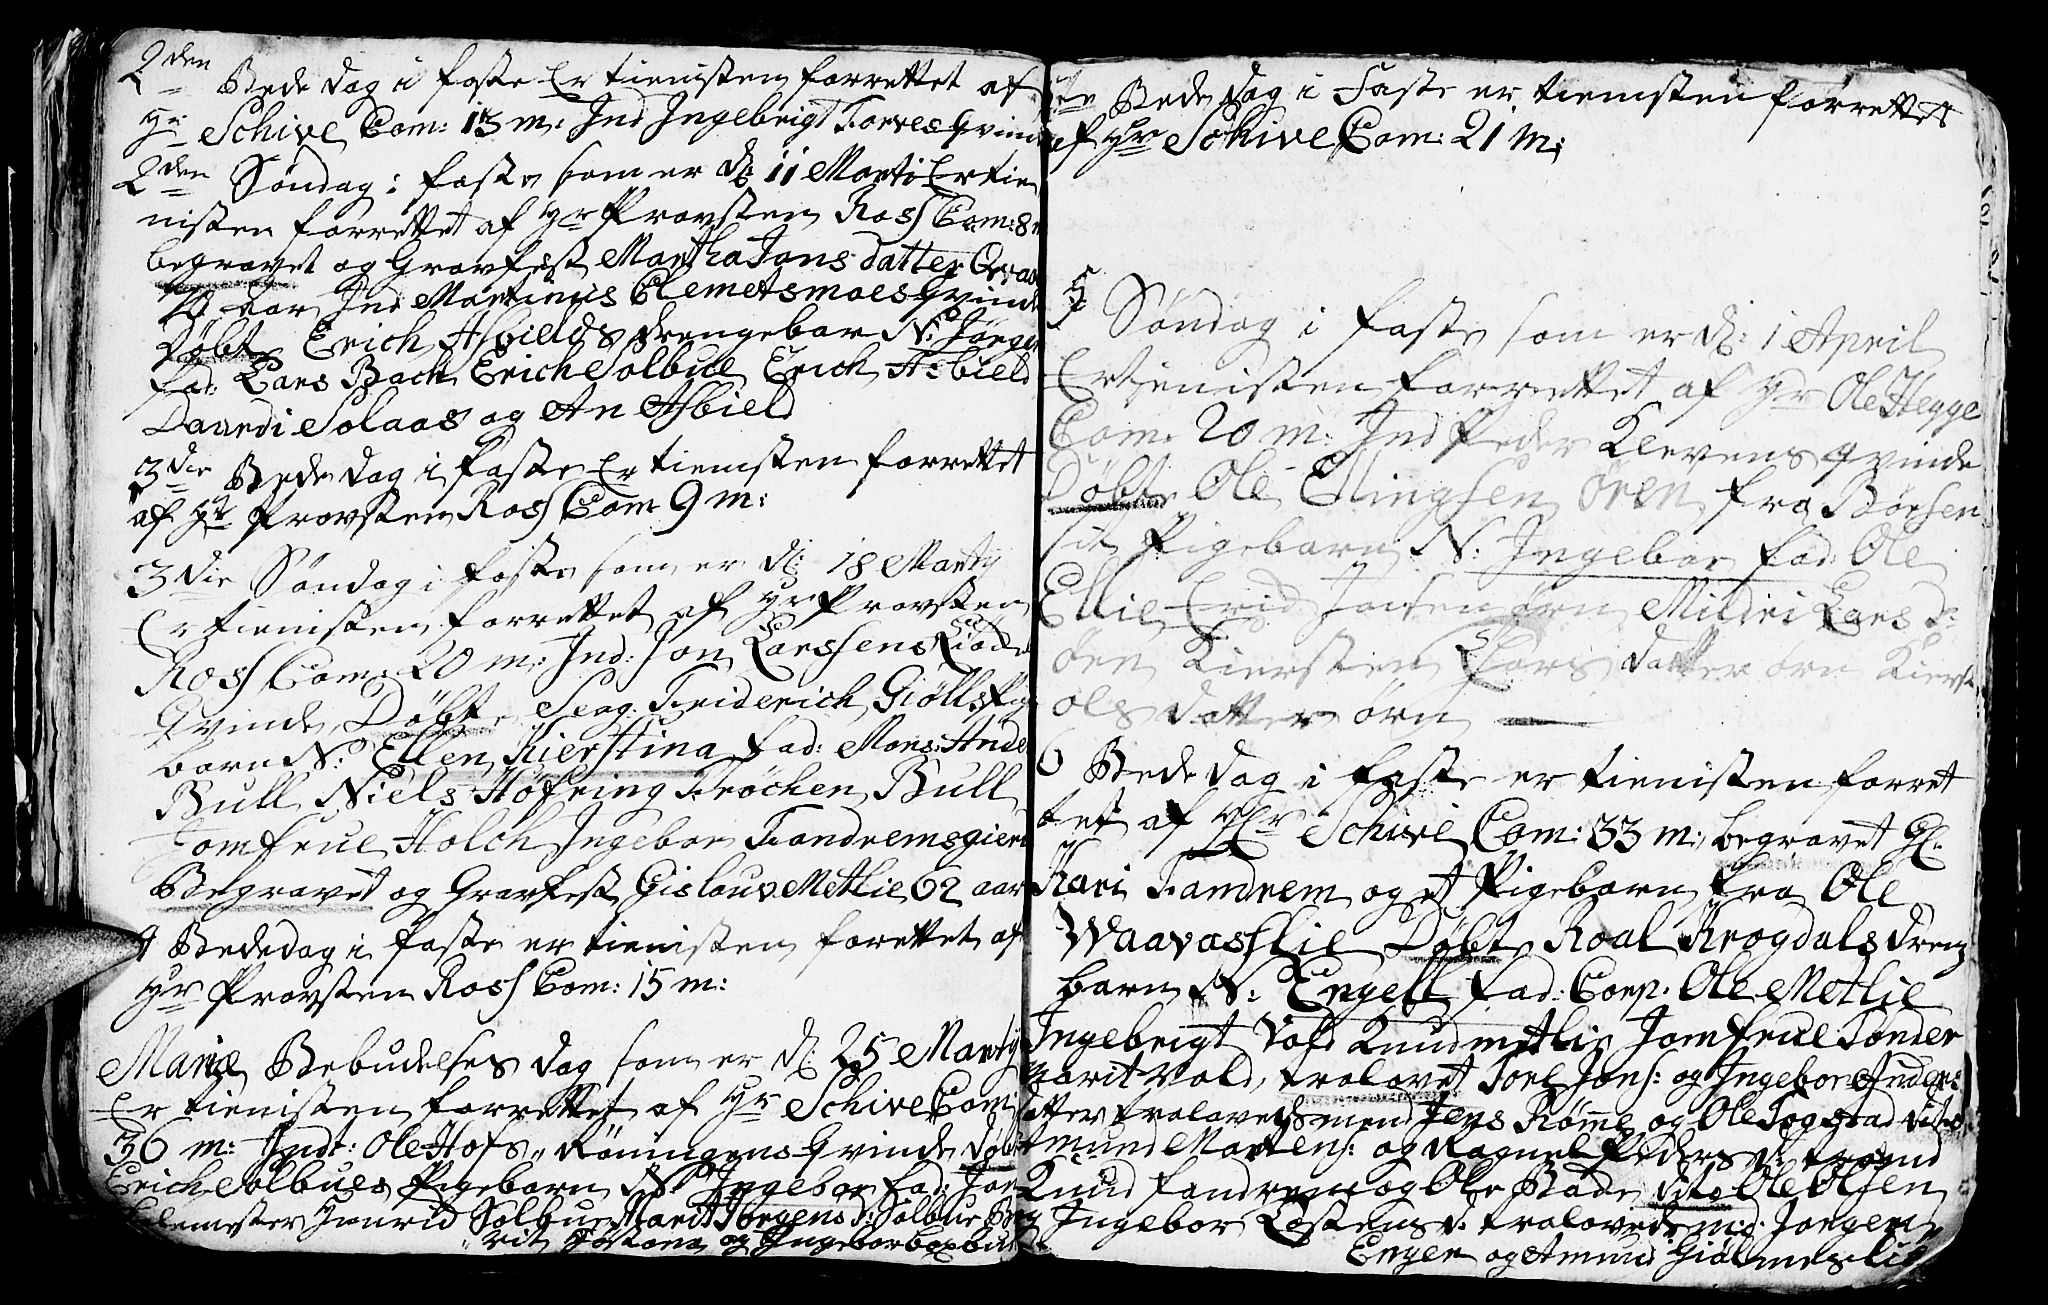 2den Bede dag i faste Er tienisten forrettet af
Hr Schive Com: 13 m: Ind Ingebrigt Torves Qvinde
2den Søndag i faste som er d: 11 Marti Er tie
nisten forrettet af Hr Provsten Ross Com: 8 m
begravet og Gravfest Martha Jons datter
70 aar Ind Martinus Clemetsmoes Qvinde
Døbt Erich Asbields drengebar N: Jørgen
fad: Lars Bach Erich Solbue Erich Asbield
Daardi Solaas og An Asbield
3die Bede dag i faste Er tienisten forrettet
af Hr Provsten Ross Com 9 m:
3die Søndag i faste som er d: 18 Marty
Er tienisten forrettet af Hr Provsten
Ross Com: 20 m: Ind: Jon Larssens
Qvinde Døbt Seag. Friderich Giølls Pige
barn N: Ellen Kierstina fad: Mons: Ande
Bull Niels Høfring Frøchen Bull
Jomfrue Holch Ingebor Fandremsgierd
Begravet og Gravfest Gislouv Metlie 62 aar
4 Bededag i faste er tienisten forettet af
Hr Provsten Ross Com: 15 m:
Mariæ Bebudelses dag som er d: 25 Marty
Er tienisten forrettet af Hr Schive Com
36 m: Indt: Ole Hofs,, Røningens Qvinde døbt
Erich Solbues Pigebarn N: Ingebor fad: Jon
Henrid Solbue Marit Jørgens d: Solbue
rit og Ingebor
Bede dag i Faste er tienisten forrettet
af Hr Schive Com: 21 m:
5 Søndag i faste som er d: 1 April
Er tienisten forrettet af Hr Ole Hegge
Com: 20 m: Ind Peder Klevens qvinde
Døbt Ole Ellingsen ören fra Børsen
sit Pigebarn N. Ingebor fad: Ole
Ellie Erid Joensen ørn Mildri Lars d:
øen Kiersten Lars datter ørn Kierst
Ols datter ørn
6 Bede dag i faste er tienisten forret
tet af Hr Schive Com: 33 m: begravet Gl.
Kari Fandrem og et Pigebarn fra Ole
Waavasslie Døbt Roal Krogdals dreng
barn N: Engell fad: Corp: Ole Metlie
Ingebrigt Vold Knud metlie Jomfrue Tønder
Marit Vold, trolovet Toel Jons: og Ingebor Anders
datter trolovedsmend Jens Rømme og Ole Togstad dito
Amund Martens: og Ragnel Peders d: trolovd
Knud fandrem og Ole Bade dito Ole Olsen
og Ingebor Estens d. trolovede m:d: Jørgen
Enger og Amund Giølmeslie